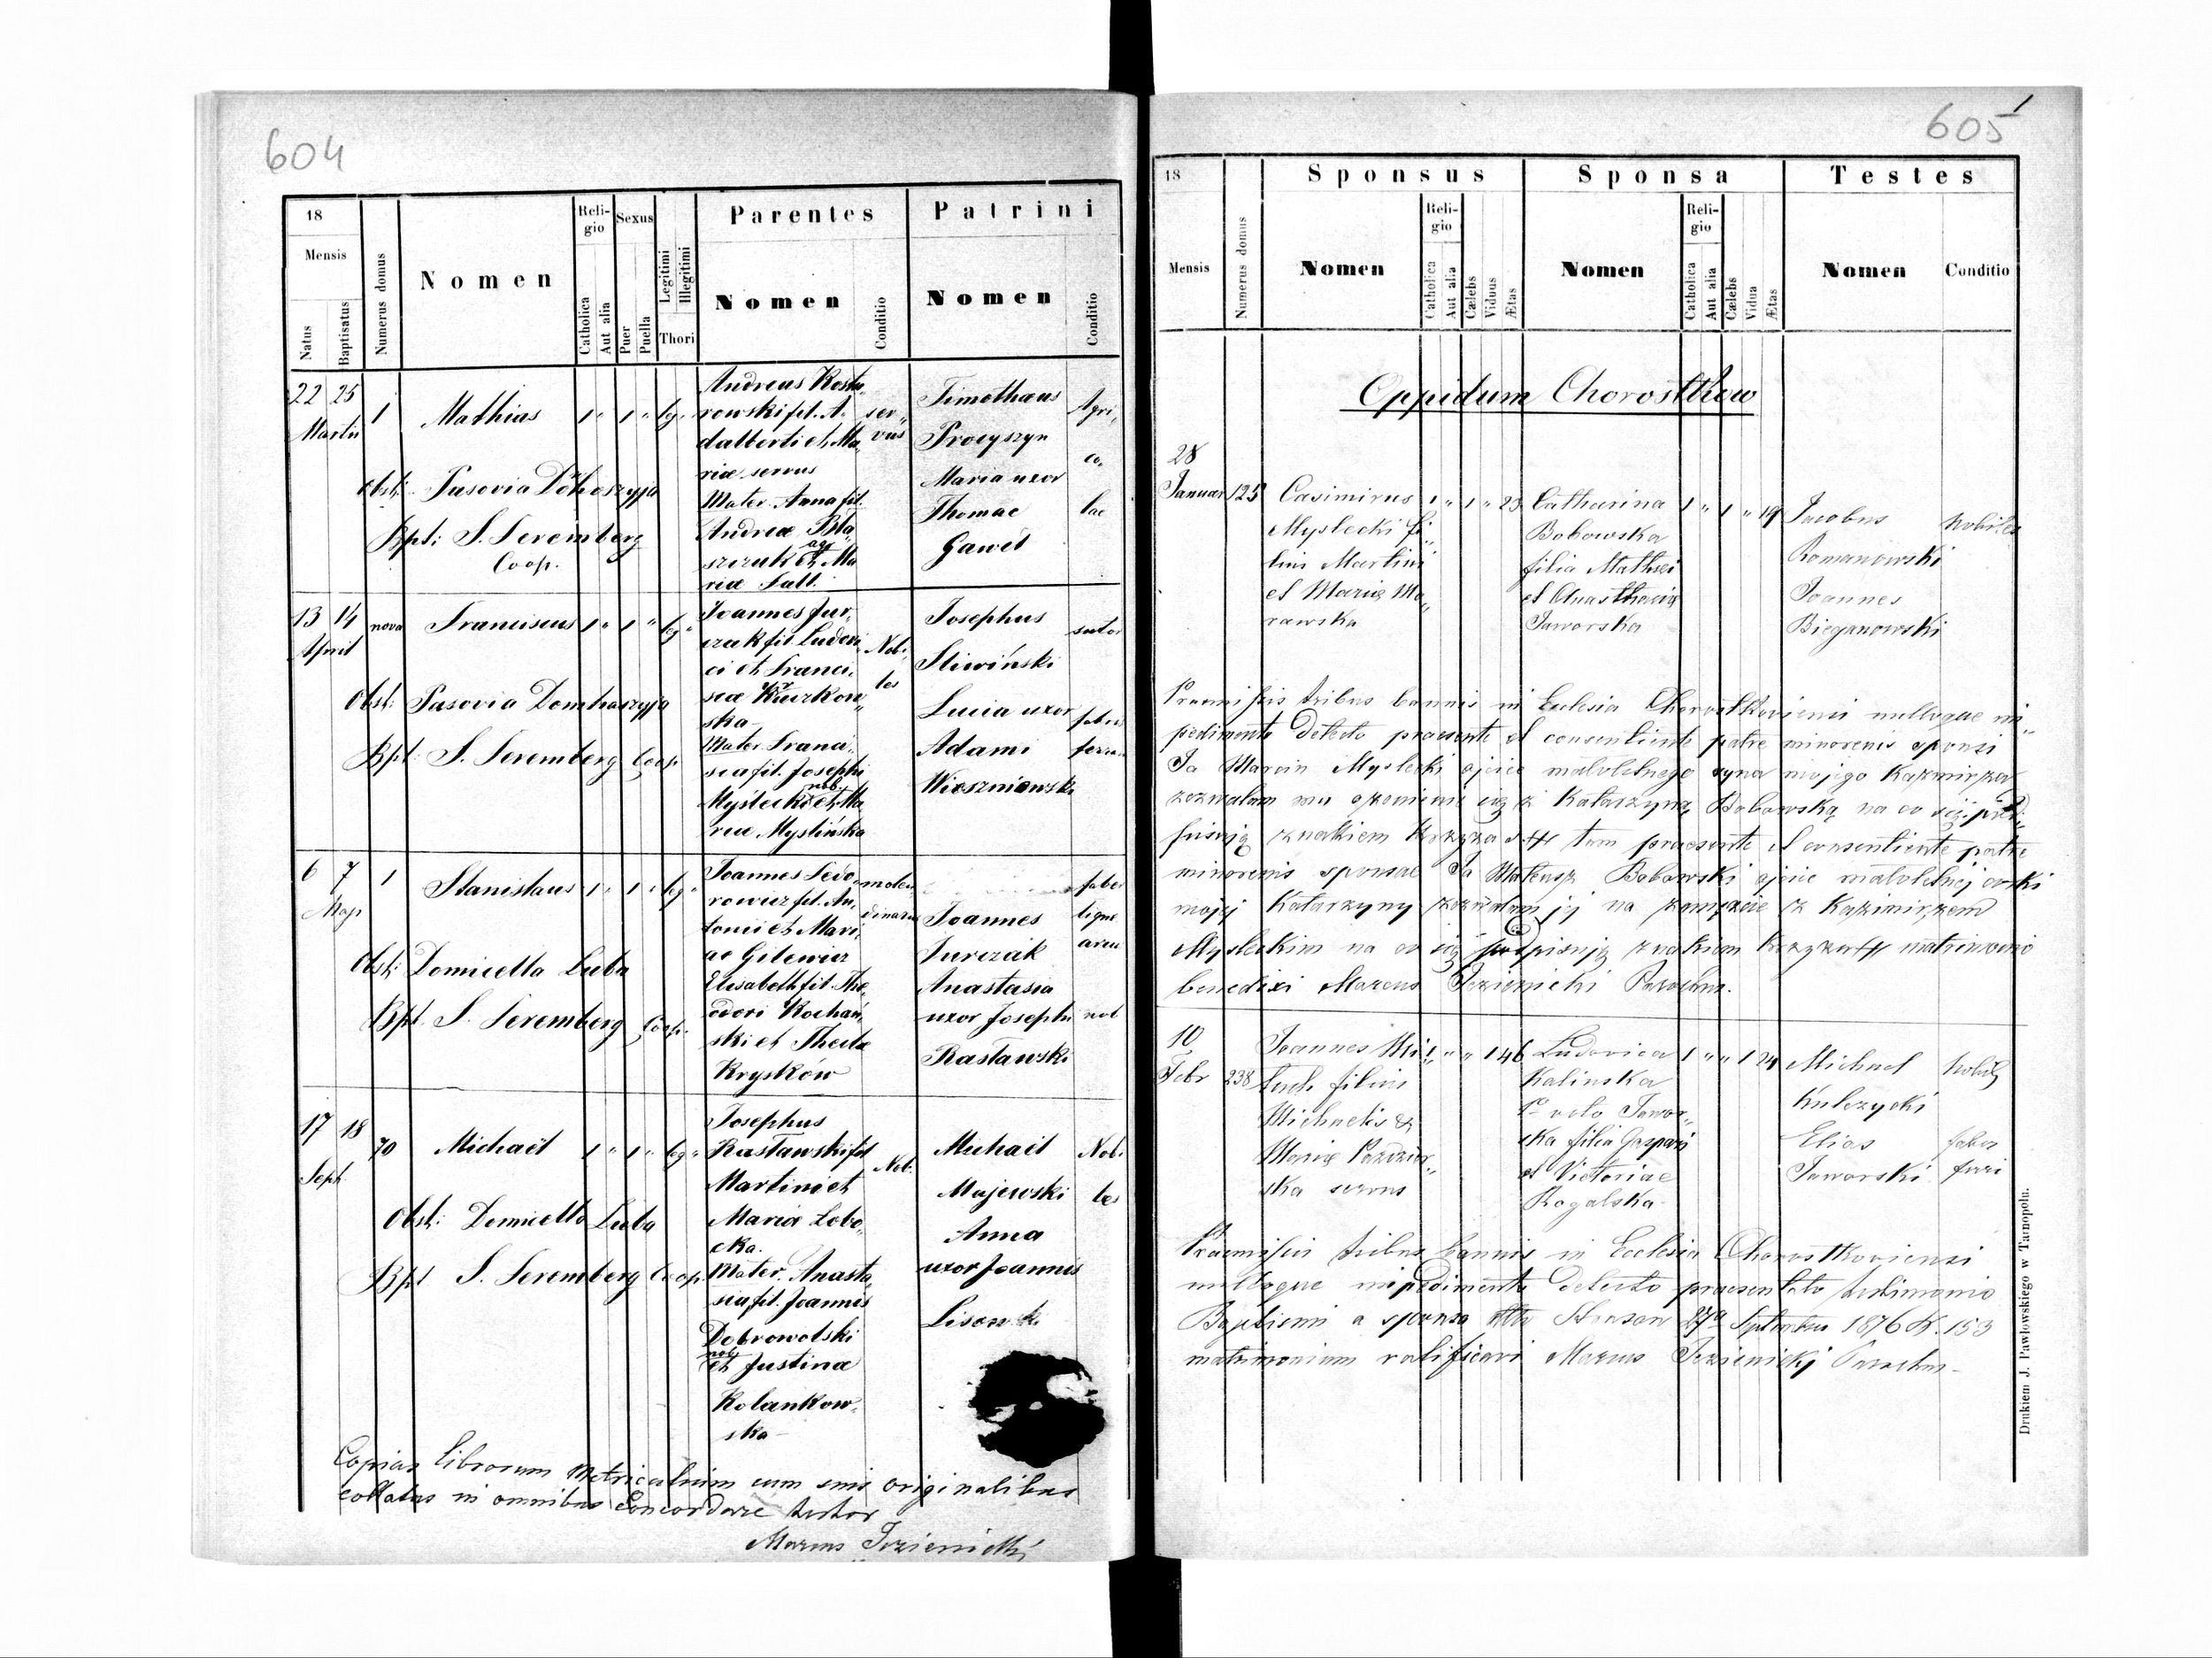 604
18
Mensis
Natus
Baptisatus
Numerus domus
Nomen
Religio
Catholica
Aut alia
Sexus
Puer
Puella
Legitimi
Illegitimi
Thori
Parentes
Nomen
Conditio
Patrini
Nomen
Conditio
22 25
Martii
1 Mathias 1 " 1 " leg "
Andreas Kostu
rowski fil. A
dalberti et Ma
riæ servus
Mater Anna fil.
Andreæ
agr
et Ma
riæ
ser
vus
Timothaeus
Procyszyn
Maria uxor
Thomae
Gaweł
Agri
co
lae
Obst:
Bpt: S. Seremberg
Coop.
13 14
April
nova Franciscus 1 " 1 " leg "
Joannes Jur
czak fil Ludovi
ci et Franci
scæ
ska
Mater Franci
sca fil. Josephi
nob.
Myślecki et Ma
riæ Myslińska
Nobi
les
Josephus
Śliwiński
Lucia uxor
Adami
Wieszniowski
sutor
Obst:
Bpt: S. Seremberg Coop
6 7
Maji
1 Stanislaus 1 " 1 " leg "
Joannes Sedo
rowicz fil. An
tonii et Mari
ae Gilewicz
Elisabeth fil. The
odori Kochań
ski et Theclæ
Krysków
Joannes
Jurczak
Anastasia
uxor Josephi
Rastawski
faber
ligna
nob
Obst: Domicella Luba
Bpt. S. Seremberg Coop.
17 18
Sept
70 Michaël 1 " 1 " leg "
Josephus
Rastawski fil
Martini et
Mariæ Lobo
cka.
Mater. Anasta
sia fil. Joannis
Dobrowolski
nob
et Justinæ
Kolankow
ska
Nob.
Michaël
Majewski
Anna
uxor Joannis
Nobi
les
Obst: Domicella Luba
Bpt S. Seremberg Coop.
Copias Librorum Metricalium cum suis originalibus
collatas in omnibus Concordare testor
605
18
Mensis
Numerus domus
Sponsus
Nomen
Religio
Catholica
Aut alia
Cælebs
Viduus
Ætas
Sponsa
Nomen
Religio
Catholica
Aut alia
Cælebs
Vidua
Ætas
Testes
Nomen
Conditio
Oppidum Chorostkow
28
Januar 125
Casimirus
Myslecki fi
lius Martini
et Mariæ Mo
rawska
1 " 1 " 23
Catharina
Bobowska
filia Mathæi
et Anasthasiæ
Jaworska
1 " 1 " 19
Jacobus
Romanowski
Joannes
Bieganowski
Nobiles
Praemissis tribus bannis in Eclesia Chorostkoviensi nulloque im
pedimento detecto praesente et consentiente patre minorenis sponsi
Ja Marcin Myslecki ojciec małoletnego syna mojego Kazmirza
zezwalam mu ożenienie się z Katarzyną Bobowską na co się
znakiem krzyża tum praesente et consentiente patre
minorenis sponsae Ja Mateusz Bobowski ojciec małoletniej córki
mojej Katarzyny zezwalam jej na zamęzcie z Kazimirzem
Mysleckim na co się podpisuję znakiem krzyża matrimonio
benedixi Marcus Parochus.
10
Febr 238
Joannes Mi
filius
Michaelis &
Mariæ
ska servus
1 " " 1 46
Ludovica
Kalinska
1o voto Jawor
ska filia Gaspari
et Victoriae
Rogalska
1 " " 1
Michael
Kulczycki
Elias
Jaworski
Nobilis
faber
ferri
Praemissis tribus bannis in Ecclesia Chorostkoviensi
nulloque impedimento detecto praesentato testimonio
Septembris 1876 N. 153
matrimonium ratificavi Marcus Parochus
Drukiem J. Pawłowskiego w Tarnopolu.